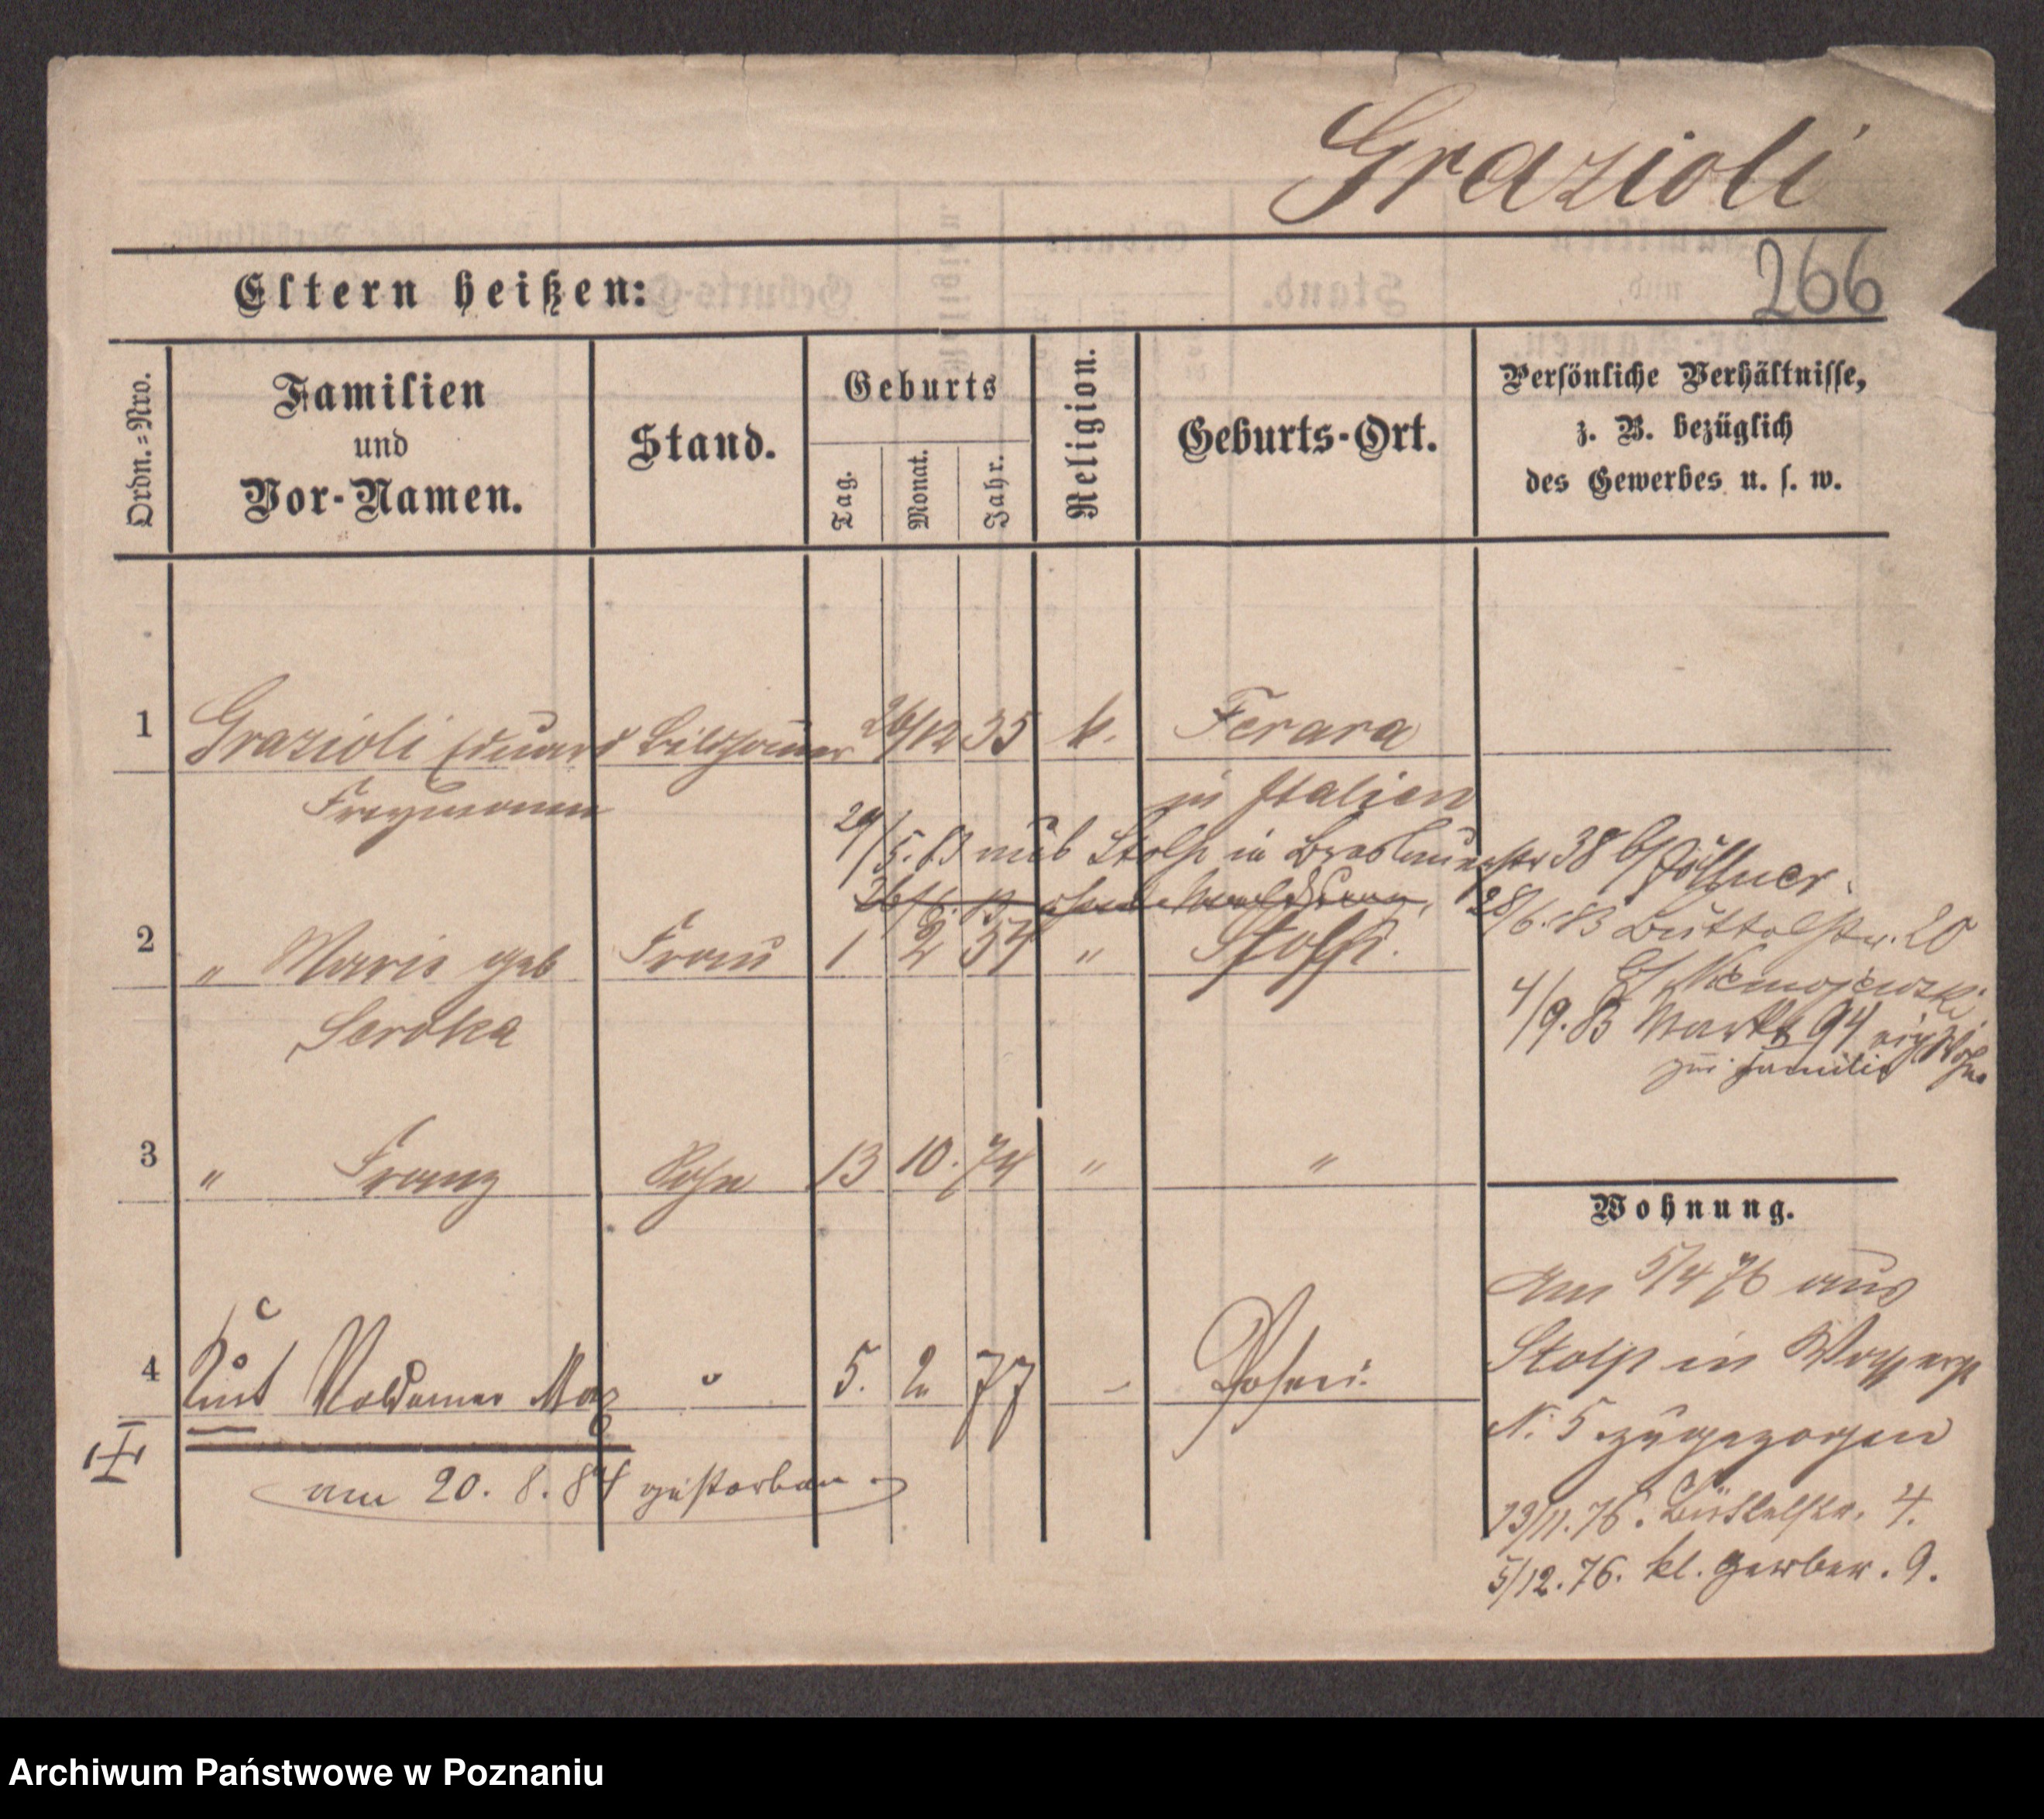 Grazioli
266
Eltern heißen:
Ordn.=Nro.
Familien
und
Vor-Namen.
Stand.
Geburts
Tag.
Monat.
Jahr.
Religion.
Geburts-Ort.
Persönliche Verhältnisse,
z. B. bezüglich
des Gewerbes u. s. w.
1 Grazioli Eduard Bildhauer 26/12 35 k. Ferara
in Italien
29/5.83 aus Stolp in Breslauerstr 38 b/Zöllner.
26/6. 83 ohne Abmeldung,
28/6.83 Büttelstr. 20
b/ Niemojewski
2 " Marie geb Frau 1 2 54 " Stolp.
Seroka
4/9.83 Markt 94
zur Familie
3 " Franz Sohn 13 10. 74 " "
Wohnung.
Am 5/4 76 aus
Stolp in
N. 5 zugezogen
4 Kurt Woldemar Max " 5. 2 77 - Posen.
am 20. 8. 84 gestorben.
13/11.76. Büttelstr. 4.
5/12.76. kl. Gerber. 9.
Archiwum Państwowe w Poznaniu